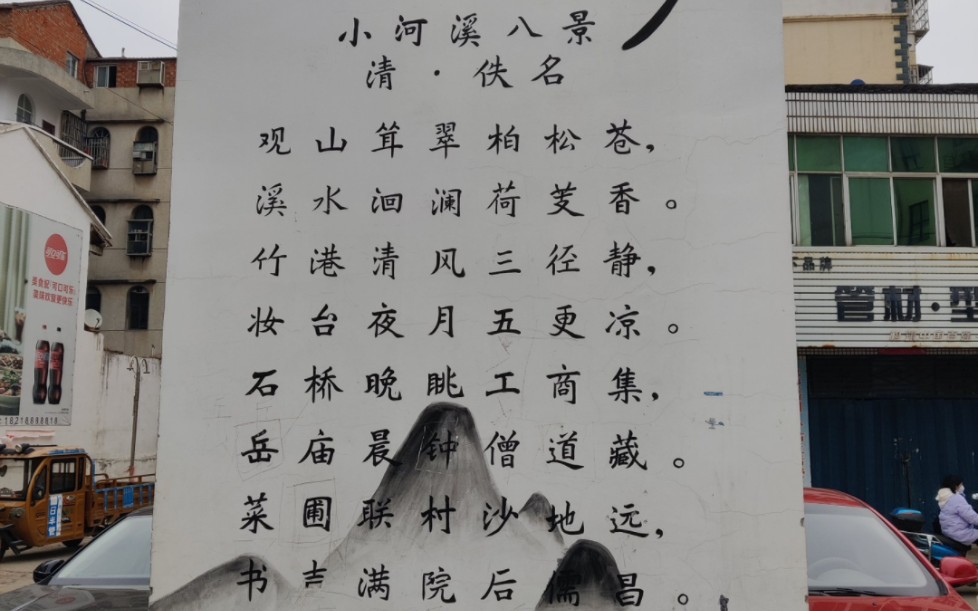 小河溪八景
清·佚名
观山茸翠柏松苍，
溪水洄澜荷芰香。
竹港清风三径静，
妆台夜月五更凉。
石桥晚眺工商集，
岳庙晨钟僧道藏。
菜圃联村沙地远，
书吉满院后儒昌。
品牌
管材·型